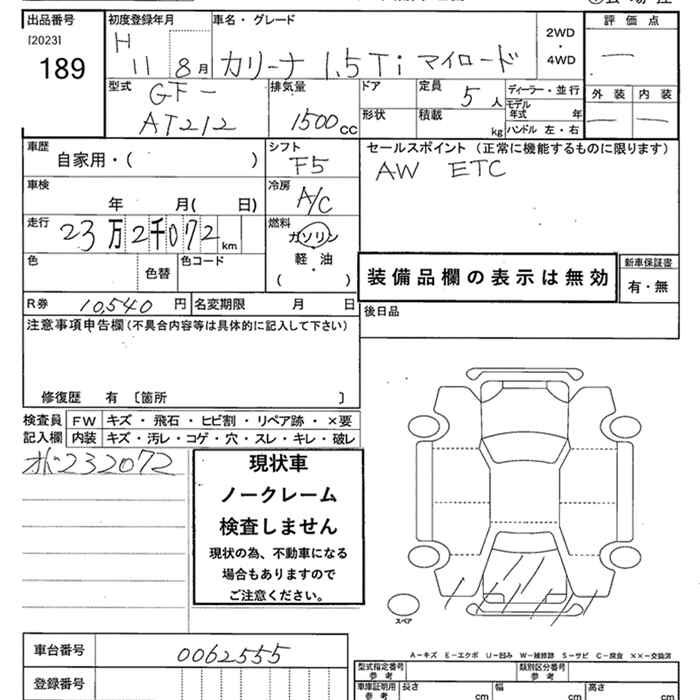 出品番号 初度登録年月 車名・グレード 2WD・4WD 評価点
[2023] 189 H 11 8月 カリーナ 1.5Ti マイロード —
型式 排気量 ドア 定員 ディーラー・並行 外装 内装
GF-AT212 1500cc 5人 モデル年式 年 — —
形状 積載 kg ハンドル 左・右
車歴 シフト セールスポイント(正常に機能するものに限ります)
自家用・( ) F5 AW ETC
車検 冷房
年 月( 日) A/C
走行 燃料
23万2千072km ガソリン
軽・油
( ・ )
色 色替 色コード
装備品欄の表示は無効 新車保証書
有・無
R券 10,540円 名変期限 月 日 後日品
注意事項申告欄(不具合内容等は具体的に記入して下さい)
修復歴 有 〔箇所 〕
検査員 FW キズ・飛石・ヒビ割・リペア跡・×要
記入欄 内装 キズ・汚レ・コゲ・穴・スレ・キレ・破レ
232072
現状車
ノークレーム
検査しません
現状の為、不動車になる
場合もありますので
ご注意ください。
スペア
A-キズ E-エクボ U-凹み W-補修跡 S-サビ C-腐食 ××-交換済
車台番号 0062555
型式指定番号 参考 類別区分番号 参考
登録番号
車庫証明用 参考 長さ cm 幅 cm 高さ cm